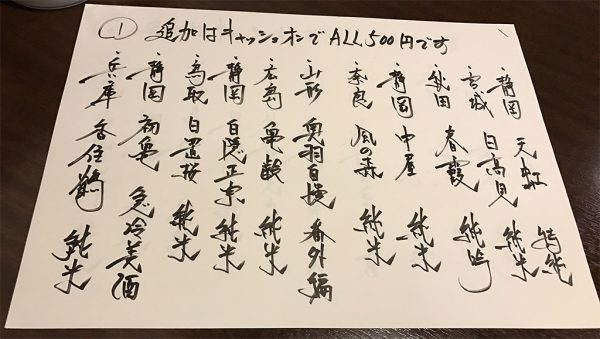 ① 追加はキャッシュオンでALL500円です
・静岡 天虹 特純
・宮城 日高見 純米
・秋田 春霞 純吟
・静岡 中屋 純米
・奈良 風の森 純米
・山形 奥羽自慢 番外編
・広島 亀齢 純米
・静岡 白隠正宗 純米
・鳥取 日置桜 純米
・静岡 初亀 急冷美酒
・兵庫 香住鶴 純米